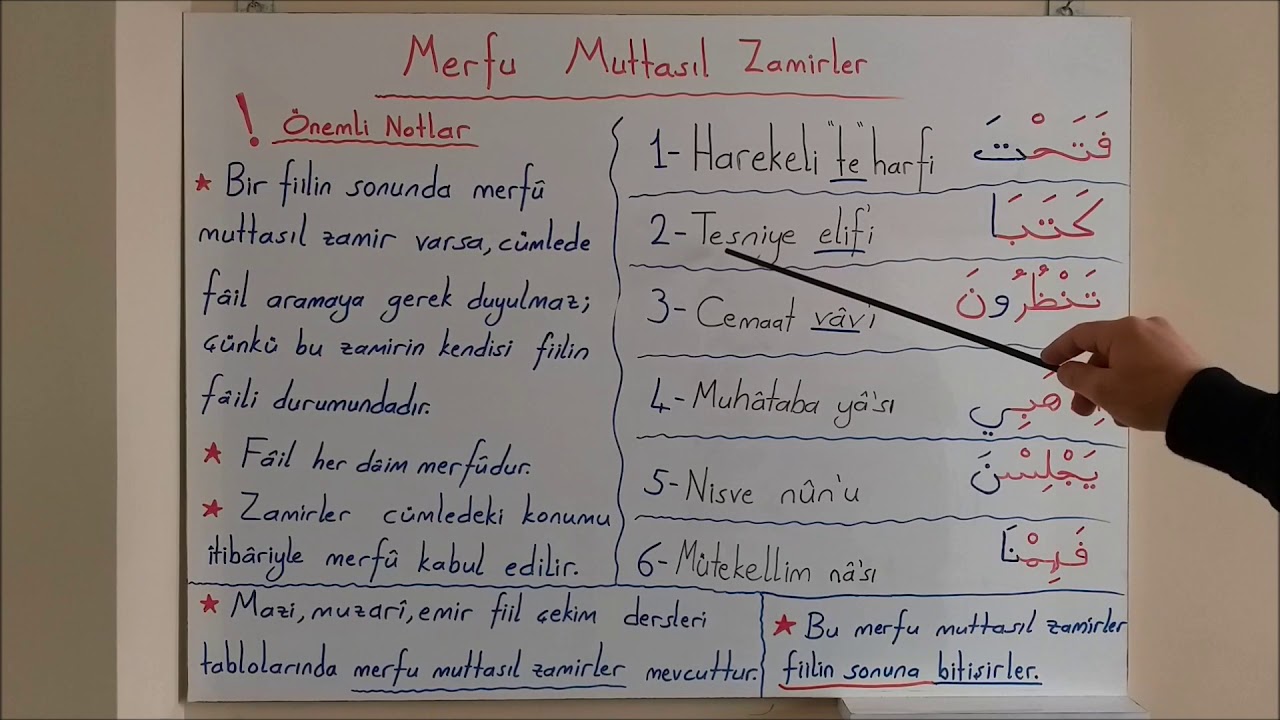 Merfu Muttasıl Zamirler
! Önemli Notlar
★ Bir fiilin sonunda merfû
muttasıl zamir varsa, cümlede
fâil aramaya gerek duyulmaz;
çünkü bu zamirin kendisi fiilin
fâili durumundadır.
★ Fâil her dâim merfûdur.
★ Zamirler cümledeki konumu
îtibâriyle merfû kabul edilir.
1- Harekeli "te" harfi فَتَحْتَ
2- Tesniye elif'i كَتَبَا
3- Cemaat vâvı تَنْظُرُونَ
4- Muhâtaba yâ'sı
5- Nisve nûn'u يَجْلِسْنَ
6- Mütekellim nâ'sı فَهِمْنَا
★ Mazi, muzarî, emir fiil çekim dersleri
tablolarında merfu muttasıl zamirler mevcuttur.
★ Bu merfu muttasıl zamirler
fiilin sonuna bitişirler.